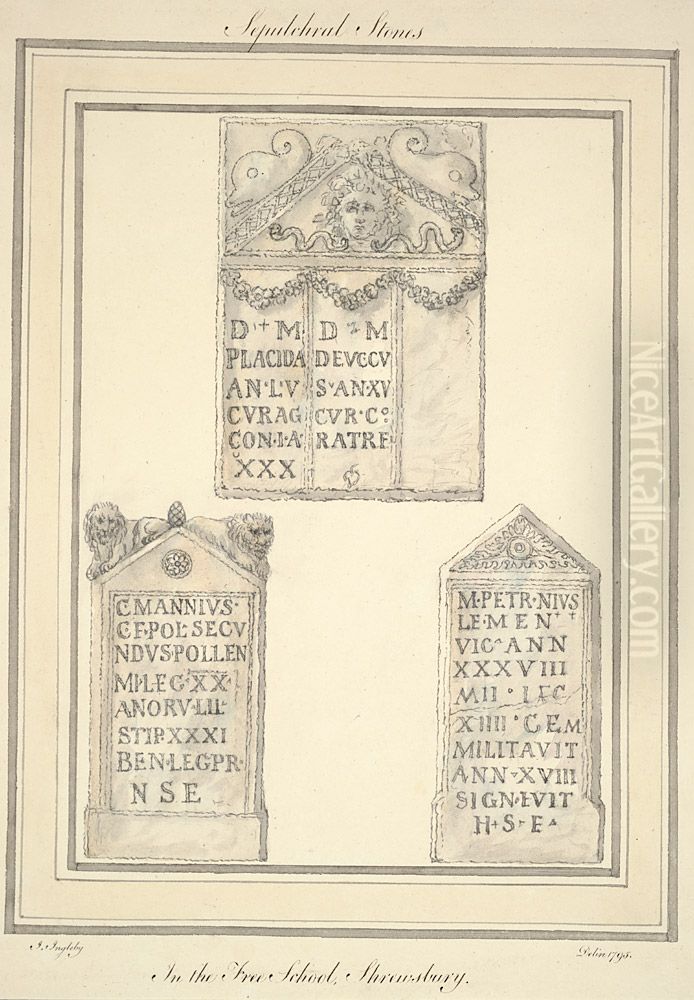 Sepulchral Stones
D M
PLACIDA
AN·L·V
CVRAG
CON·I·A
XXX
D M
DEVCCV
S·AN·XV
CVR·Cº
RATRE
C·MANNIVS·
C·F·POL·SECV
NDVS·POLLEN
MI·LEG·XX·
ANORV·LII·
STIP·XXXI
BEN·LEG·PR·
NSE
M·PETR·NIVS
LE·MEN
VIC·ANN
XXXVIII
MII·LEC
XIIII·CEM
MILITAVIT
ANN·XVIII
SIGN·FVIT
H·S·E
J. Ingleby
Delin 1795.
In the Free School, Shrewsbury.
NiceArtGallery.com